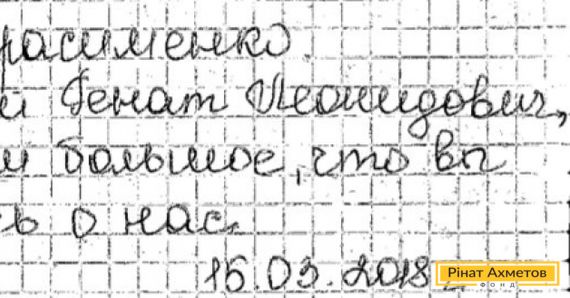 расименко.
й Генат Иеонидович,
м большое, что вы
ь о нас.
15.03.2018
Рінат Ахметов
ФОНД